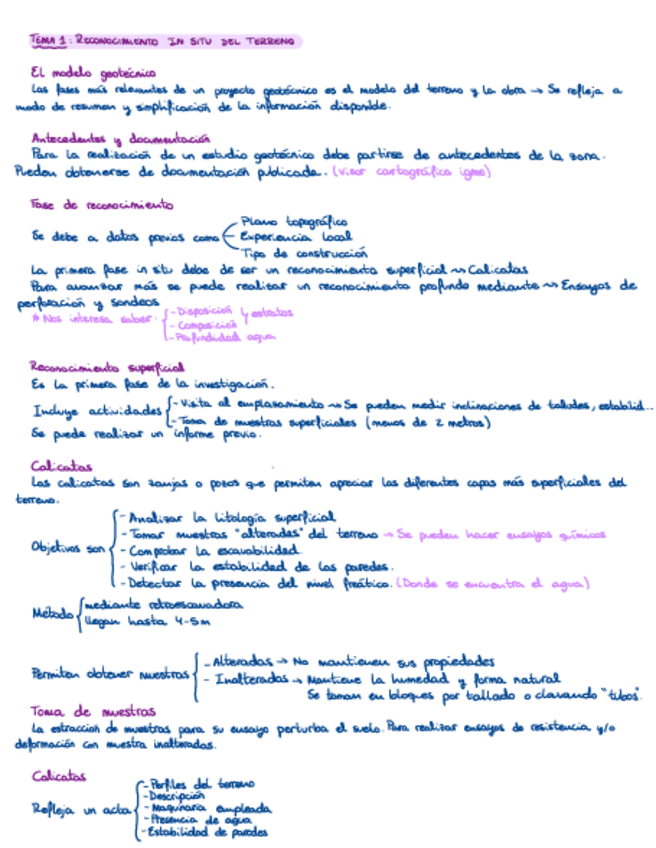 TEMA 1: RECONOCIMIENTO IN SITU DEL TERRENO
El modelo geotécnico
Las fases más relevantes de un proyecto geotécnico es el modelo del terreno y la obra → Se refleja a
modo de resumen y simplificación de la información disponible.
Antecedentes y documentación
Para la realización de un estudio geotécnico debe partirse de antecedentes de la zona.
Pueden obtenerse de documentación publicada. (visor cartográfico igme)
Fase de reconocimiento
Se debe a datos previos como
Plano topográfico
Experiencia local
Tipo de construcción
La primera fase in situ debe de ser un reconocimiento superficial ~> Calicatas
Para avanzar más se puede realizar un reconocimiento profundo mediante ~> Ensayos de
perforación y sondeos
* Nos interesa saber:
- Disposición y estratos
- Composición
- Profundidad agua
Reconocimiento superficial
Es la primera fase de la investigación.
Incluye actividades
- Visita al emplazamiento ~> Se pueden medir inclinaciones de taludes, estabilid...
- Toma de muestras superficiales (menos de 2 metros)
Se puede realizar un informe previo.
Calicatas
Las calicatas son zanjas o pozos que permiten apreciar las diferentes capas más superficiales del
terreno.
Objetivos son
- Analizar la litología superficial
- Tomar muestras "alteradas" del terreno → Se pueden hacer ensayos químicos
- Comprobar la excavabilidad
- Verificar la estabilidad de las paredes.
- Detectar la presencia del nivel freático. (Donde se encuentra el agua)
Método
mediante retroexcavadora
llegan hasta 4-5m
Permiten obtener muestras
- Alteradas → No mantienen sus propiedades
- Inalteradas → Mantiene la humedad y forma natural
Se toman en bloques por tallado o clavando "tubos".
Toma de muestras
La extracción de muestras para su ensayo perturba el suelo. Para realizar ensayos de resistencia y/o
deformación con muestra inalteradas.
Calicatas
Refleja un acta
- Perfiles del terreno
- Descripción
- Maquinaria empleada
- Presencia de agua
- Estabilidad de paredes